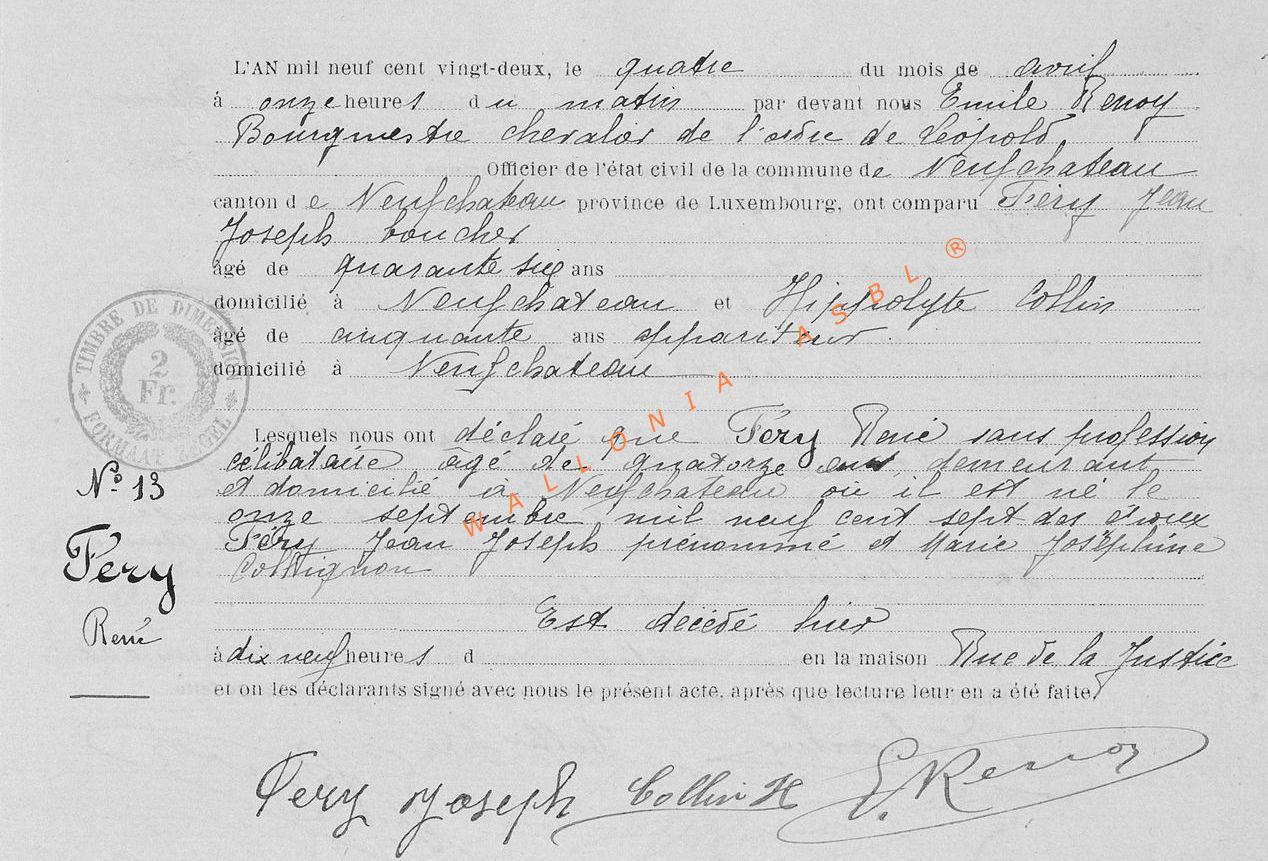 L'AN mil neuf cent vingt-deux, le quatre du mois de avril
à onze heures du matin par devant nous Emile Renoy
Bourgmestre chevalier de l'ordre de Léopold
Officier de l'état civil de la commune de Neufchateau
canton de Neufchateau province de Luxembourg, ont comparu Féry Jean
Joseph boucher
âgé de quarante six ans
domicilié à Neufchateau et Hippolyte Collin
âgé de cinquante ans appariteur
domicilié à Neufchateau
Lesquels nous ont déclaré que Féry René sans profession
célibataire âgé de quatorze ans, demeurant
et domicilié à Neufchateau où il est né le
onze septembre mil neuf cent sept des époux
Féry Jean Joseph prénommé et Marie Joséphine
Collignon
Est décédé hier
à dix neuf heures d en la maison Rue de la Justice
et on les déclarants signé avec nous le présent acte, après que lecture leur en a été faite,
Fery Joseph Collin H E. Renoy
TIMBRE DE DIMENSION
2
Fr.
FORMAAT ZEGEL
No 13
Fery
René
WALLONIA ASBL ®